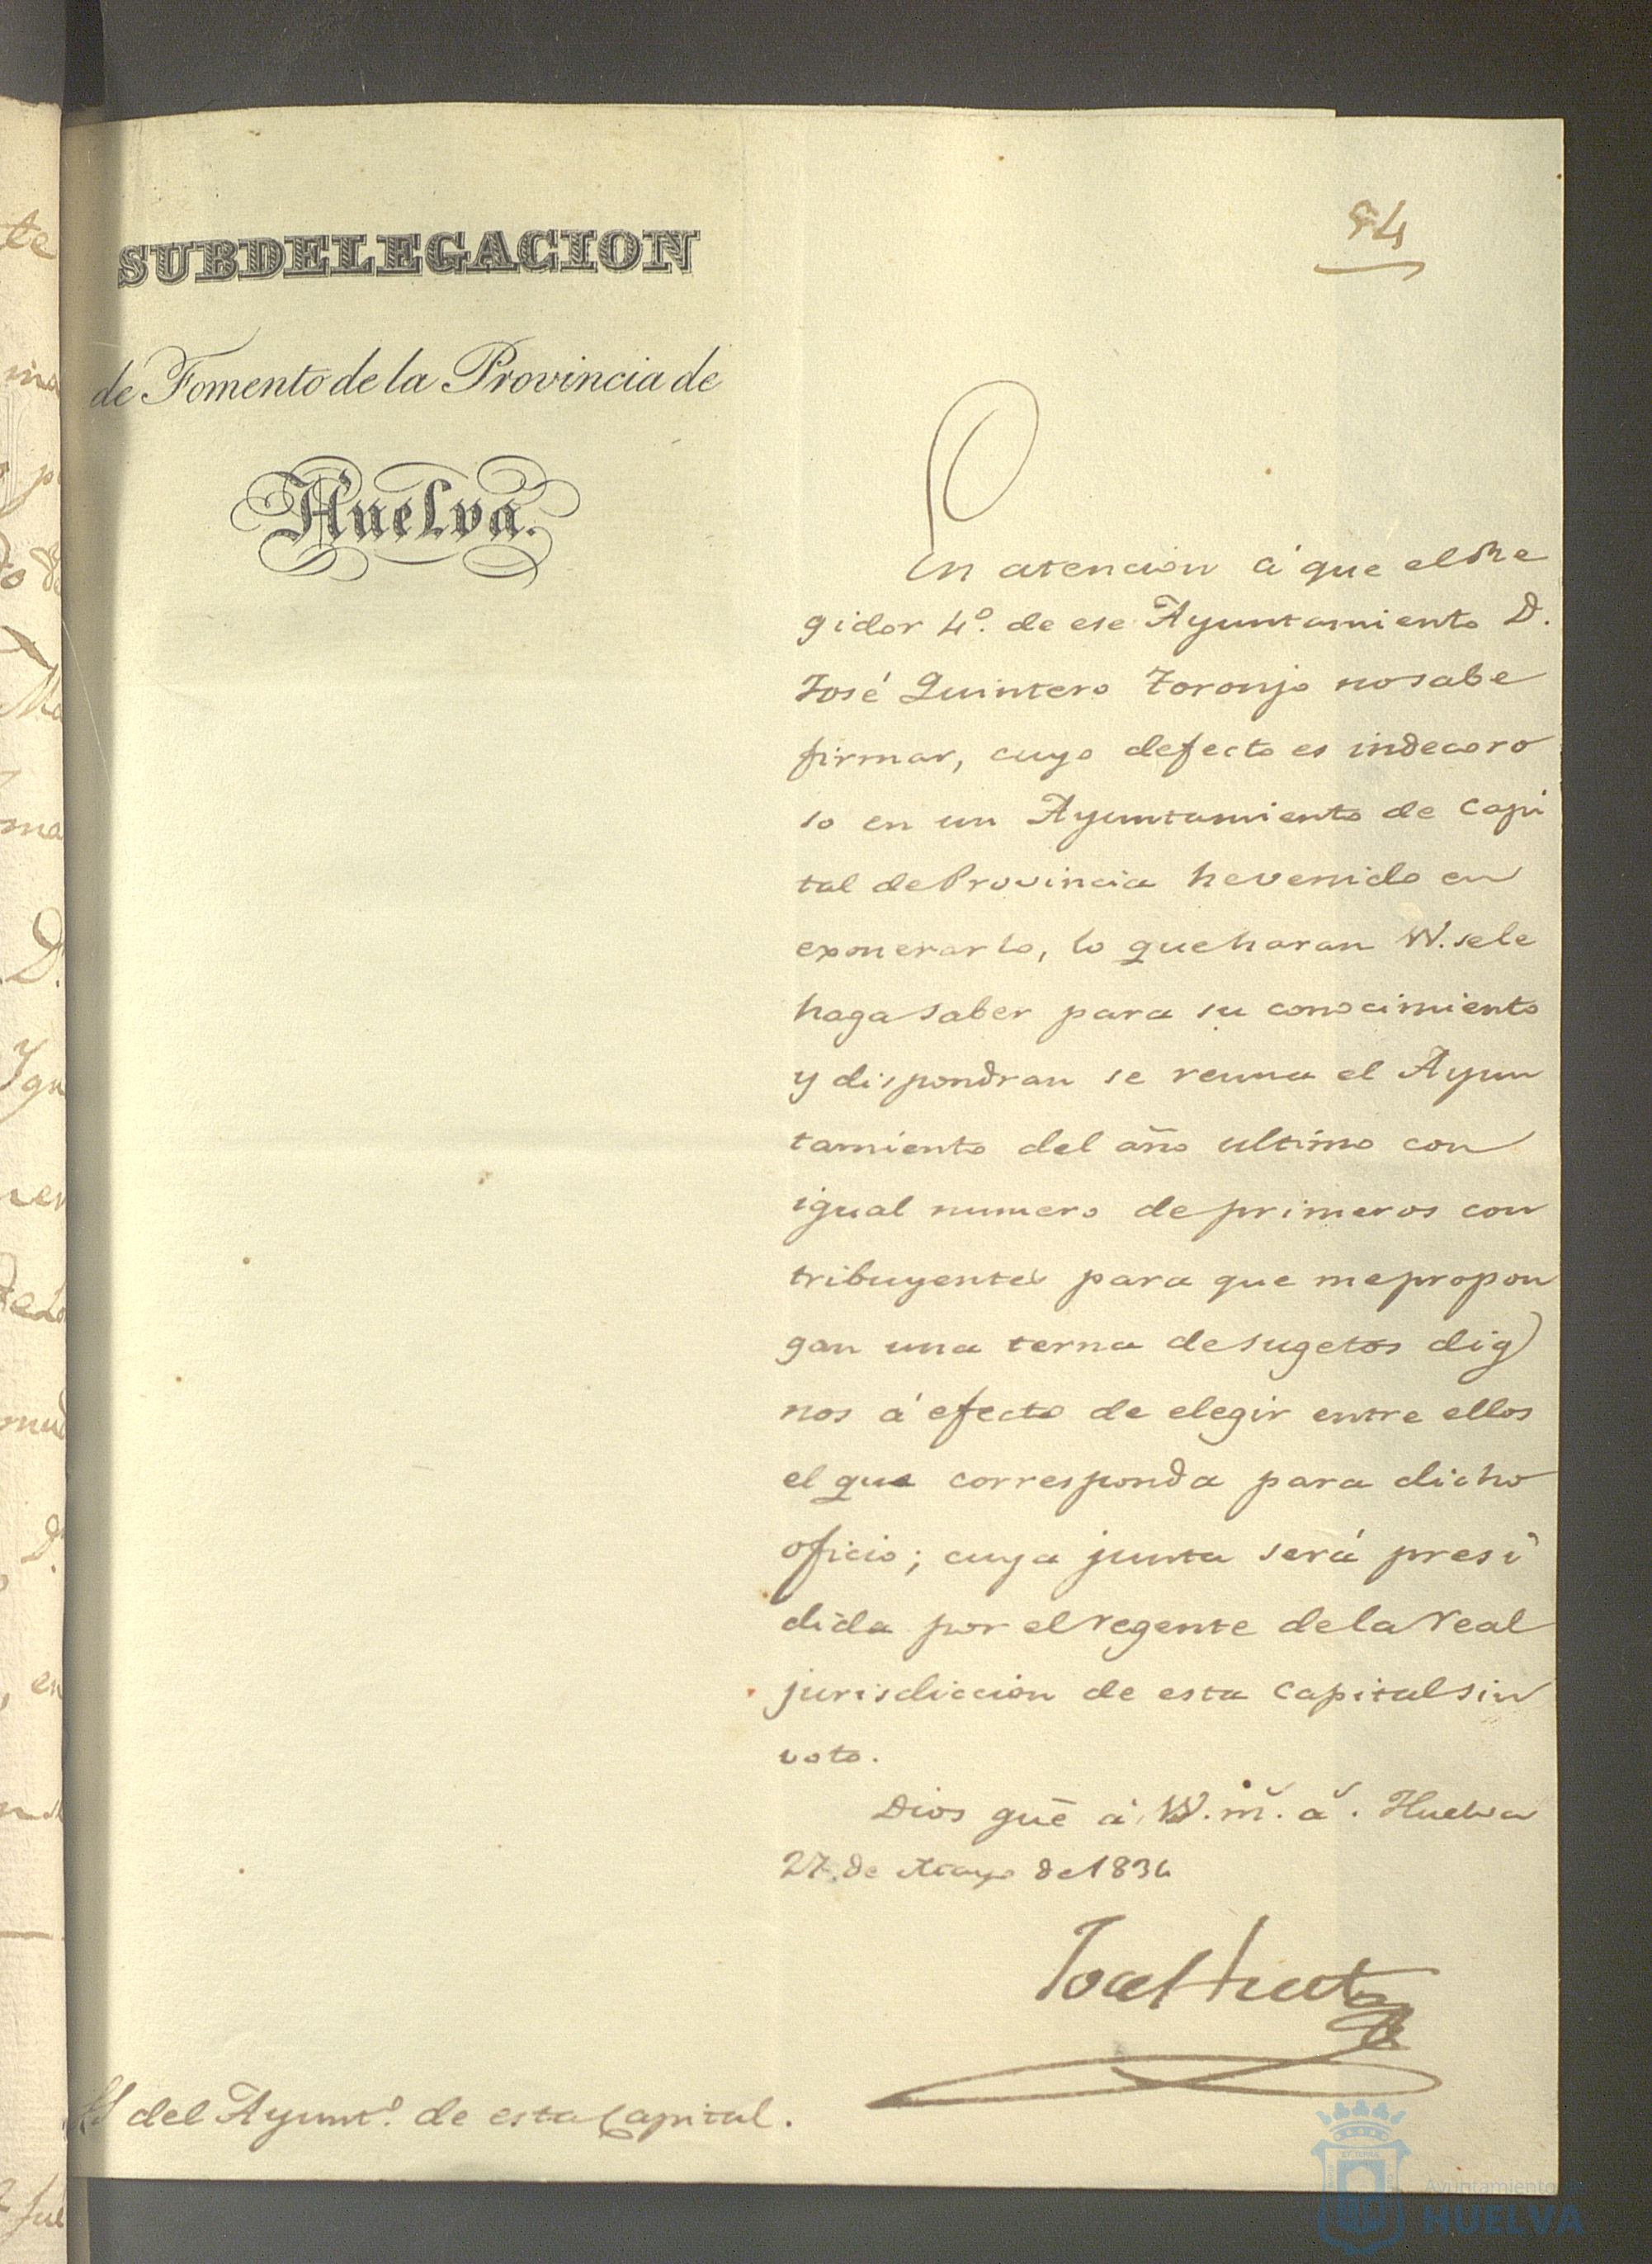 94
SUBDELEGACION
de Fomento de la Provincia de
Huelva.
En atencion á que el Re
gidor 4º. de ese Ayuntamiento D.
José Quintero Toronjo no sabe
firmar, cuyo defecto es indecoro
so en un Ayuntamiento de Capi
tal de Provincia he venido en
exonerarlo, lo que haran VV. se le
haga saber para su conocimiento
y dispondran se reuna el Ayun
tamiento del año ultimo con
igual numero de primeros con
tribuyentes para que me propon
gan una terna de sugetos dig
nos á efecto de elegir entre ellos
el que corresponda para dicho
oficio; cuya junta será presi
dida por el regente de la real
jurisdiccion de esta Capital sin
voto.
Dios gue á VV. m.s a.s. Huelva
27. de Mayo de 1834
José Huet
del Ayunt.º de esta Capital.
Ayuntamiento de
HUELVA